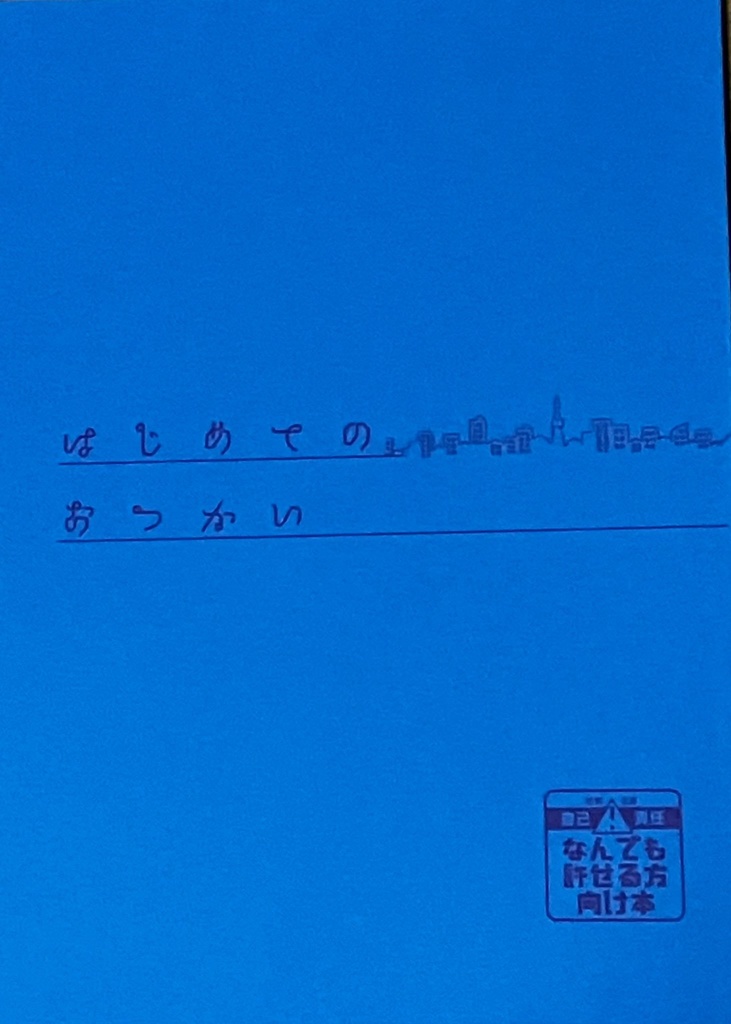 はじめての
おつかい
自己 責任
なんでも
許せる方
向け本